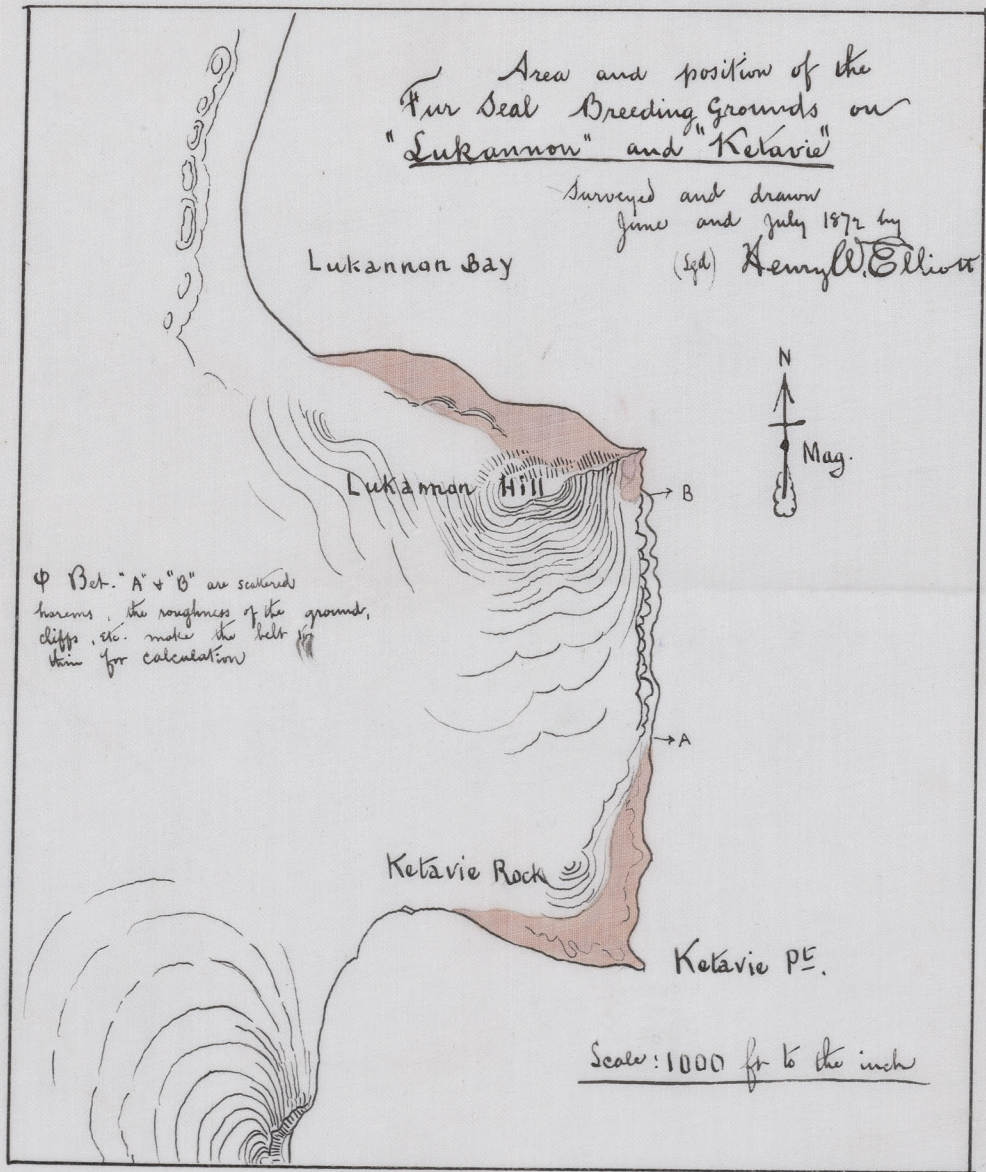 Area and position of the
Fur Seal Breeding Grounds on
"Lukannon" and "Ketavie"
Surveyed and drawn
June and July 1872 by
(Sgd) Henry W. Elliott
Lukannon Bay
N
Mag.
Lukannon Hill
B
φ Bet. "A" & "B" are scattered
harems, the roughness of the ground,
cliffs, etc. make the belt too
thin for calculation
A
Ketavie Rock
Ketavie Pt.
Scale: 1000 ft to the inch